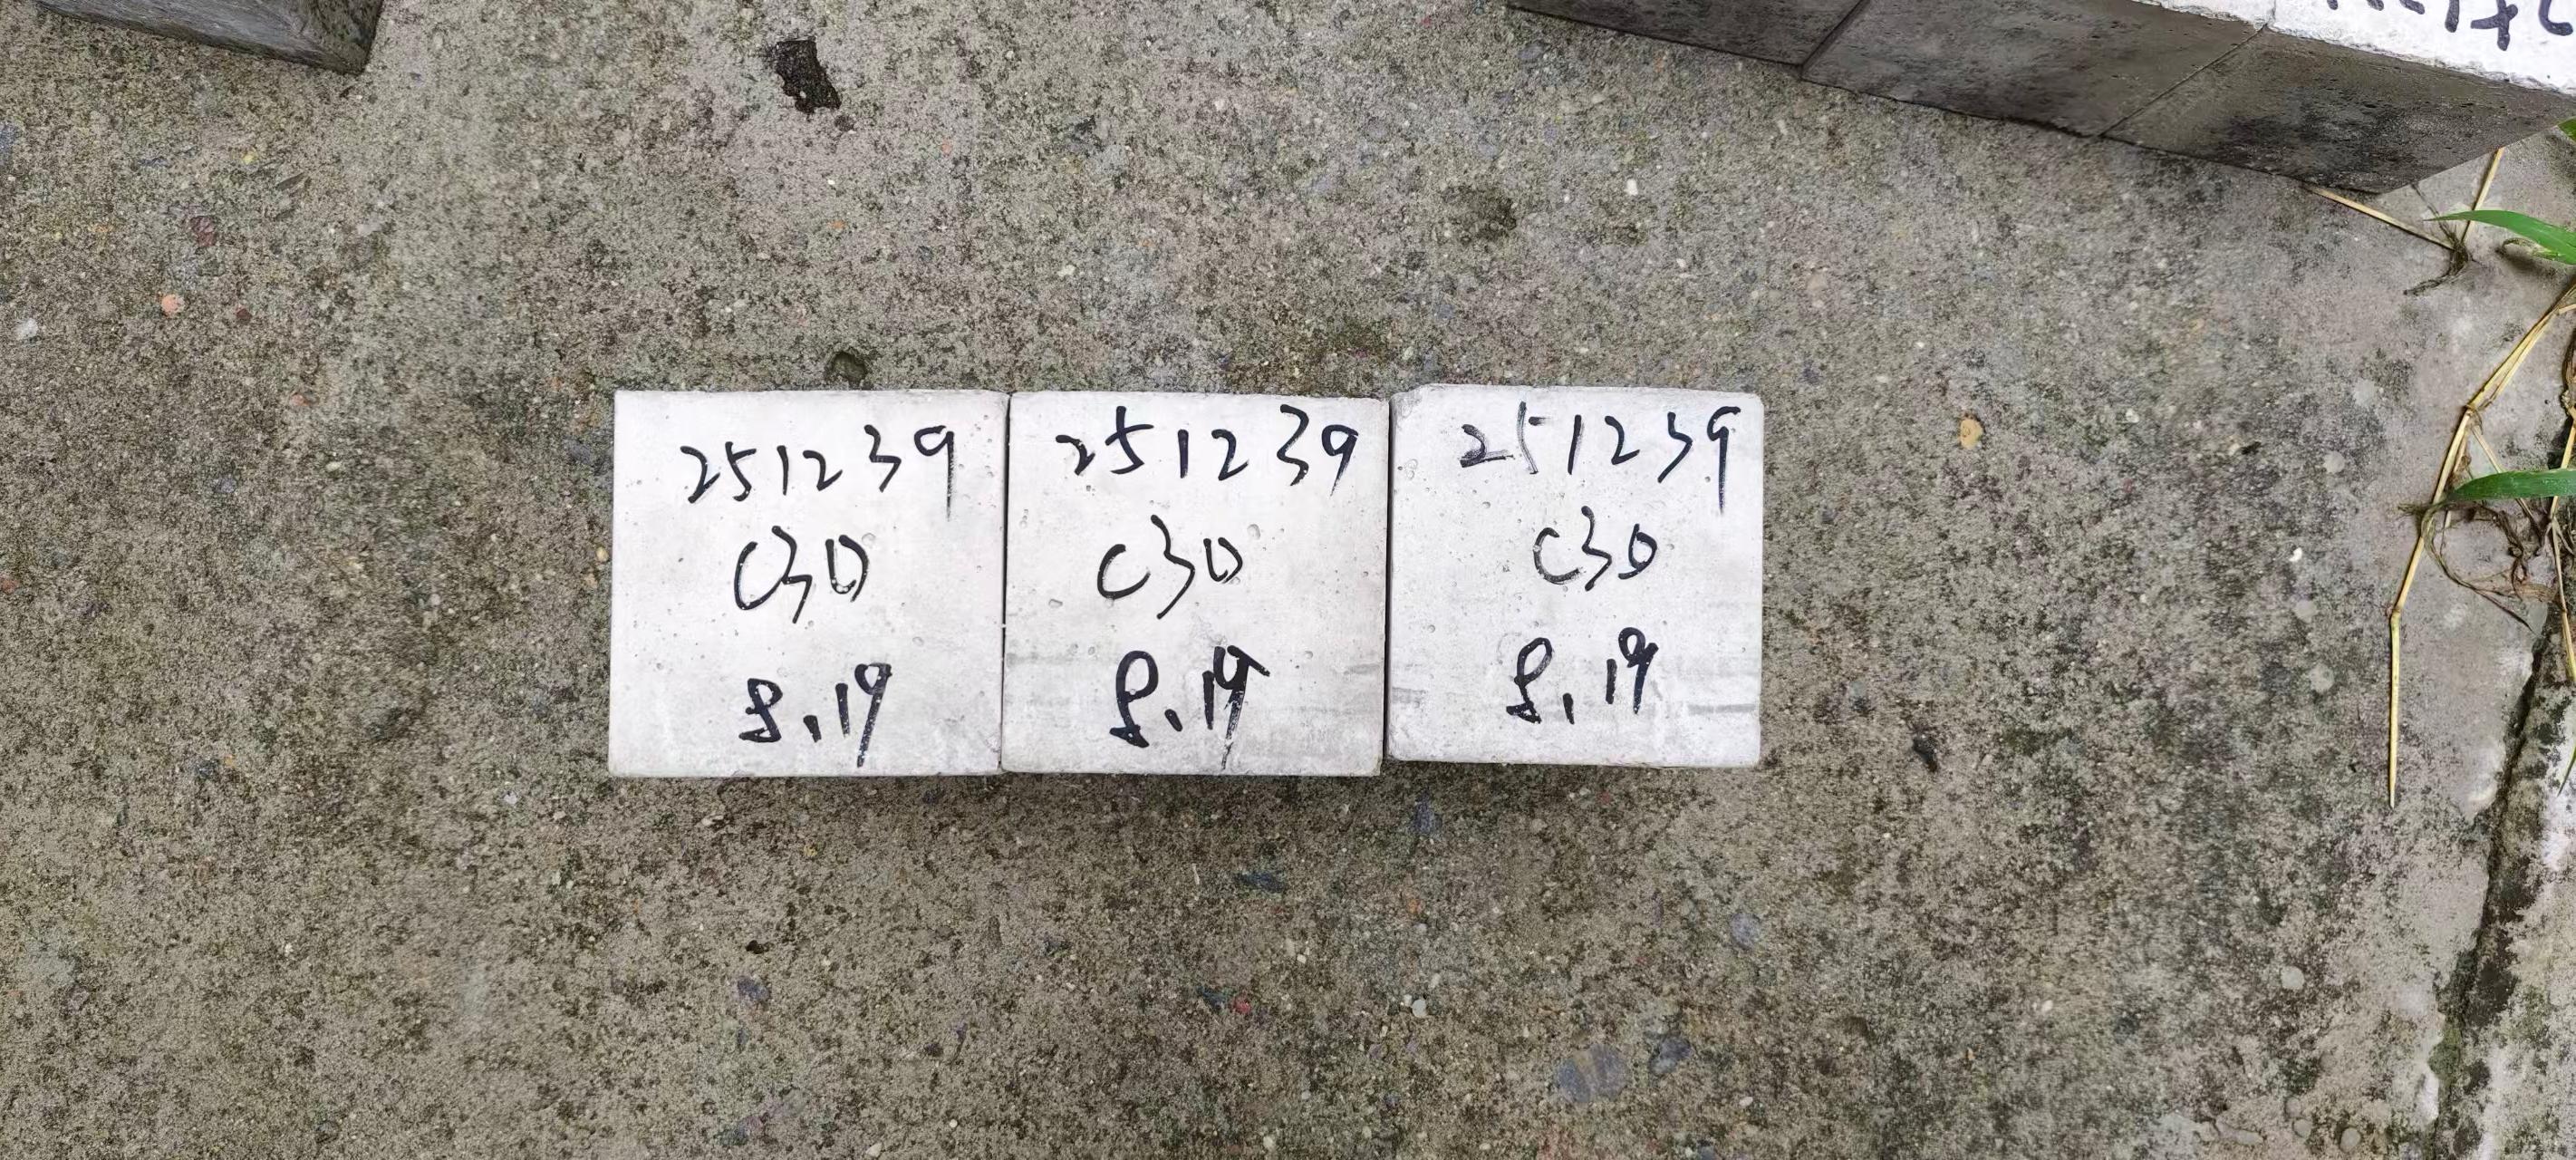 251239
C30
8.19
251239
C30
8.19
251239
C30
8.19